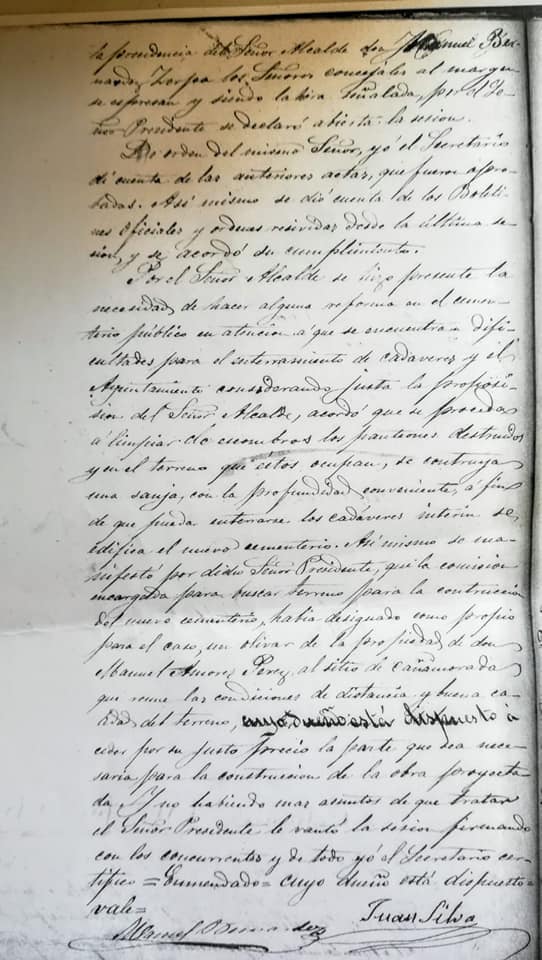 la presidencia del Señor Alcalde don Manuel Ber-
nardez Zorpa los Señores concejales al margen
se espresan y siendo la hora señalada, por el Se-
ñor Presidente se declaró abierta la sesion.
De orden del mismo Señor, yó el Secretario
dí cuenta de las anteriores actas, que fueron apro-
badas. Así mismo se dió cuenta de los Boleti-
nes Oficiales y ordenes resividas desde la última se-
sion, y se acordó su cumplimiento.
Por el Señor Alcalde se hizo presente la
necesidad de hacer alguna reforma en el cemen-
terio público en atencion á que se encuentran difi-
cultades para el enterramiento de cadaveres y el
Ayuntamiento considerando justa la proposi-
sion del Señor Alcalde, acordó que se proceda
á limpiar de escombros los panteones destruidos
y en el terreno que éstos ocupan, se contruya
una sanja, con la profundidad conveniente, á fin
de que pueda enterrarse los cadáveres interin se
edifica el nuevo cementerio. Así mismo se ma-
nifestó por dicho Señor Presidente, que la comision
encargada para buscar terreno para la contruccion
del nuevo cementerio, habia designado como propio
para el caso, un olivar de la propiedad de don
Manuel Amores Perez, al sitio de Cañamorada
que reune las condiciones de distancia y buena ca-
lidad del terreno, cuyo dueño está dispuesto á
ceder por su justo precio la parte que sea nece-
saria para la construccion de la obra proyecta-
da. Y no habiendo mas asuntos de que tratar
el Señor Presidente le vantó la sesion firmando
con los concurrentes y de todo yó el Secretario cer-
tífico = Enmendado = cuyo dueño está dispuesto =
vale =
Manuel Bernardez Juan Silva